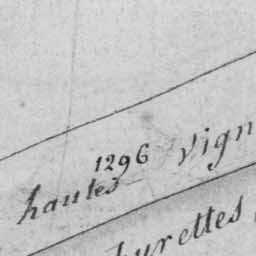 hautes vign
1296
urettes